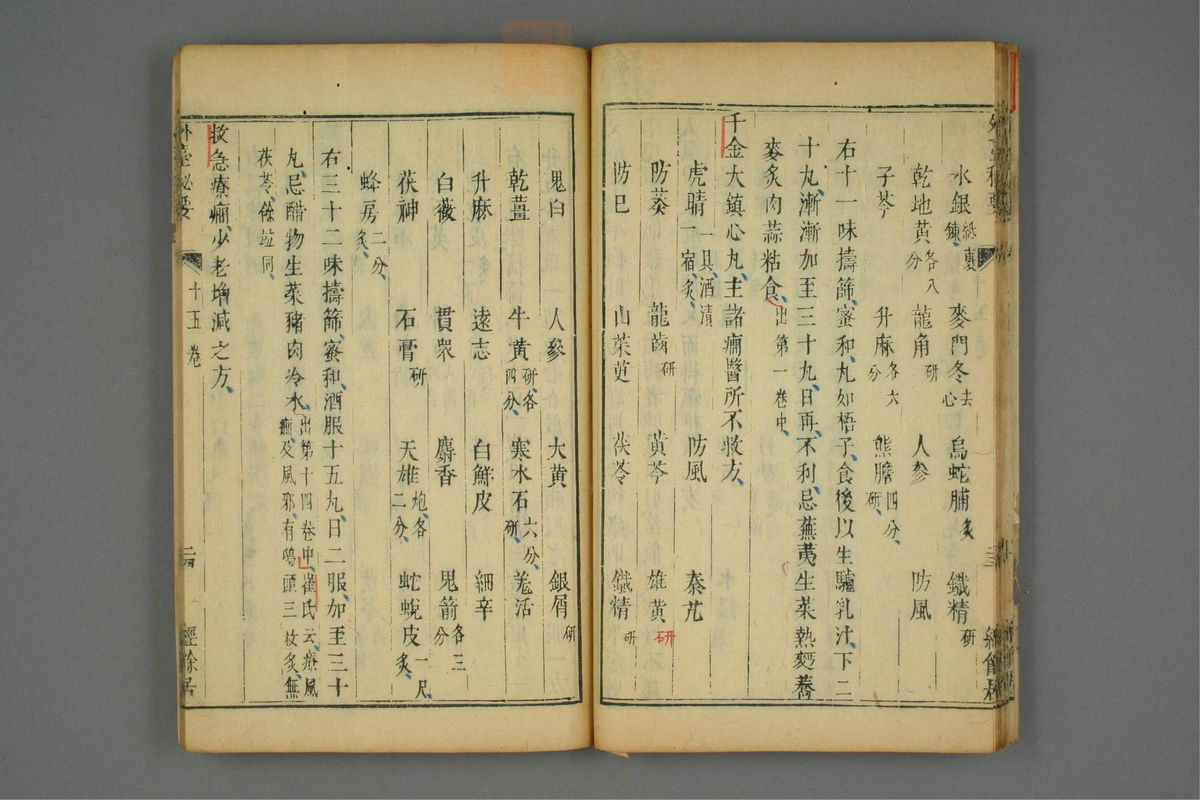 水銀紙裹鍊、麥門冬去心烏蛇脯炙鐵精研
乾地黃各八分龍角研人參防風
子芩升麻各六分熊膽四分、研、
右十一味擣篩、蜜和、丸如梧子、食後以生驢乳汁、下二
十丸、漸漸加至三十九、日再、不利、忌蕪荑生菜熱麪蕎
麥炙肉蒜粘食、出第一卷中、
千金大鎮心丸、主諸癇醫所不救方、
虎睛一具、酒漬一宿、炙、防風秦艽
防葵龍齒研黃芩雄黃研
防巳山茱萸茯苓鐵精研
鬼臼人參大黃銀屑研
乾薑牛黃研、各四分、寒水石六分、研、羗活
升麻遠志白鮮皮細辛
白薇貫眾麝香鬼箭各三分
茯神石膏研天雄炮、各二分、蛇蛻皮一尺、炙、
蜂房二分、炙、
右三十二味擣篩、蜜和、酒服十五丸、日二服、加至三十
丸、忌醋物生菜豬肉冷水、出第十四卷中、崔氏云、療風癇及風邪、有鳴頭三枚炙、無
茯苓、餘竝同、
救急療癇、少老增減之方、
外臺秘要 十五卷 經餘居